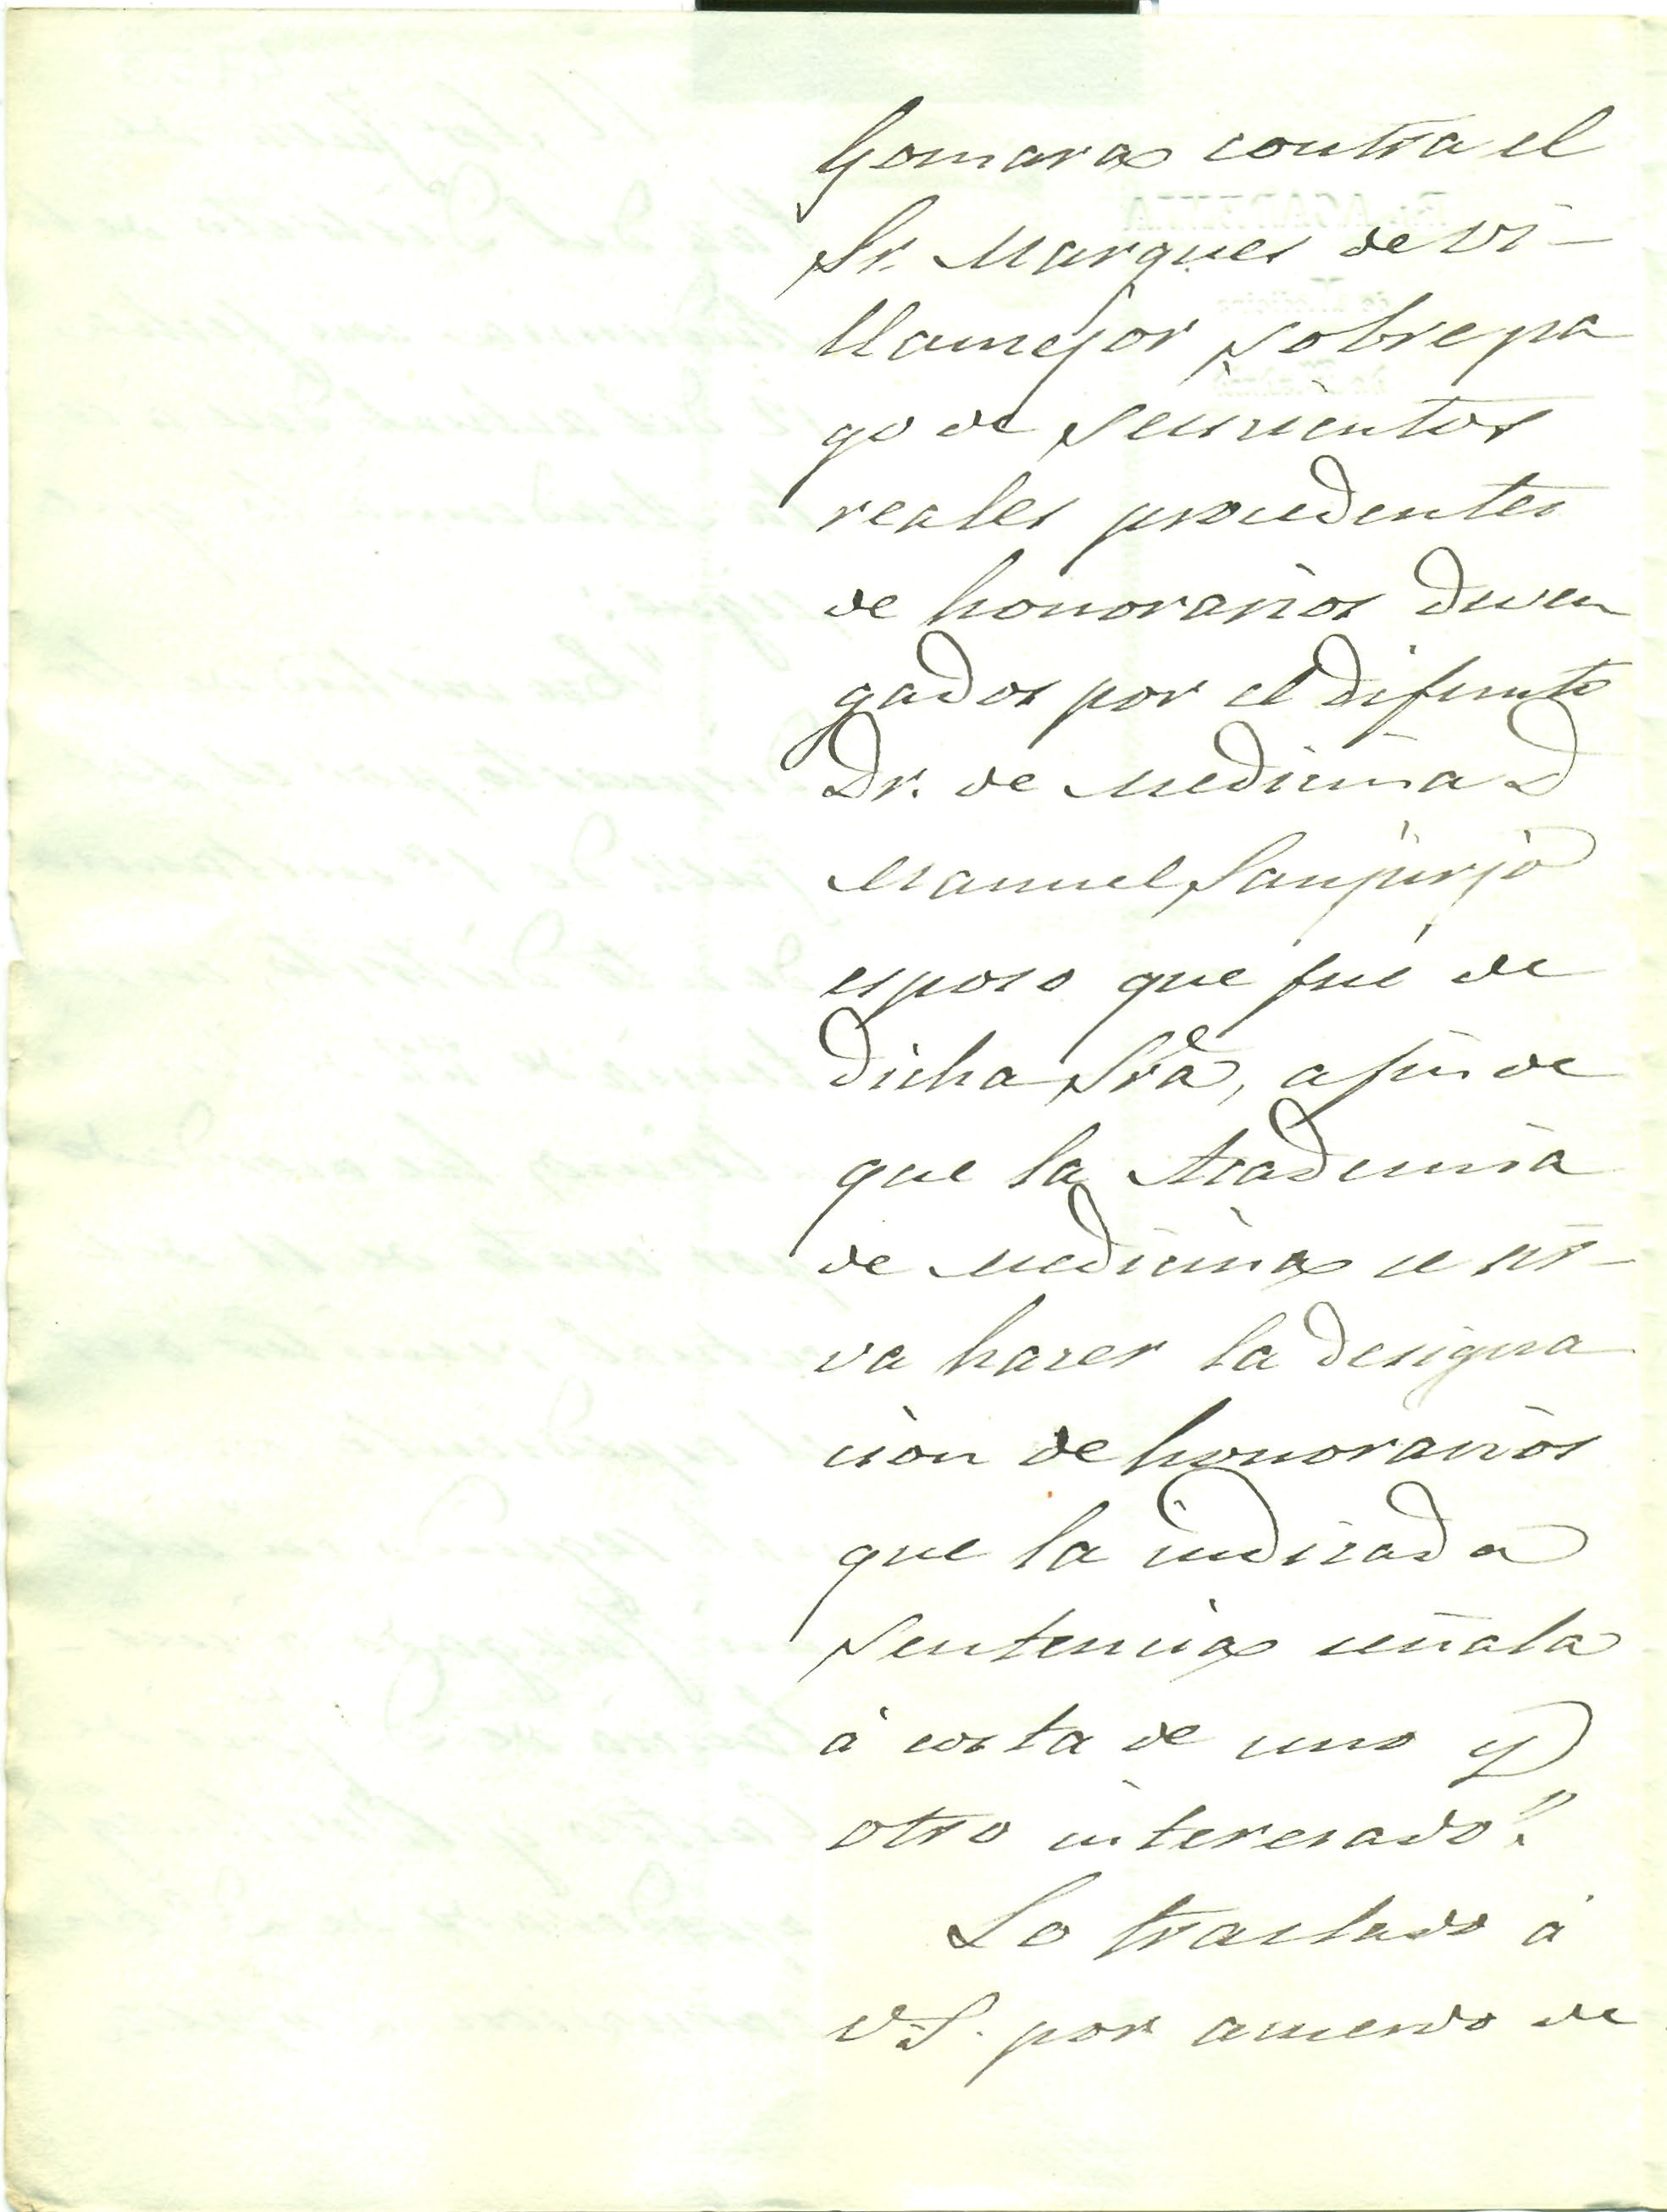 Gomara contra el
Sr. Marques de Vi-
llamejor sobre pa
go de seiscientos
reales procedentes
de honorarios deven
gados por el difunto
Dr. de Medicina D
Manuel Sanjurjo
esposo que fué de
dicha Srã, a fin de
que la Academia
de Medicina se sir-
va hacer la designa
cion de honorarios
que la indicada
sentencia señala
á costa de uno y
otro interesado".
Lo traslado á
V.S. por acuerdo de